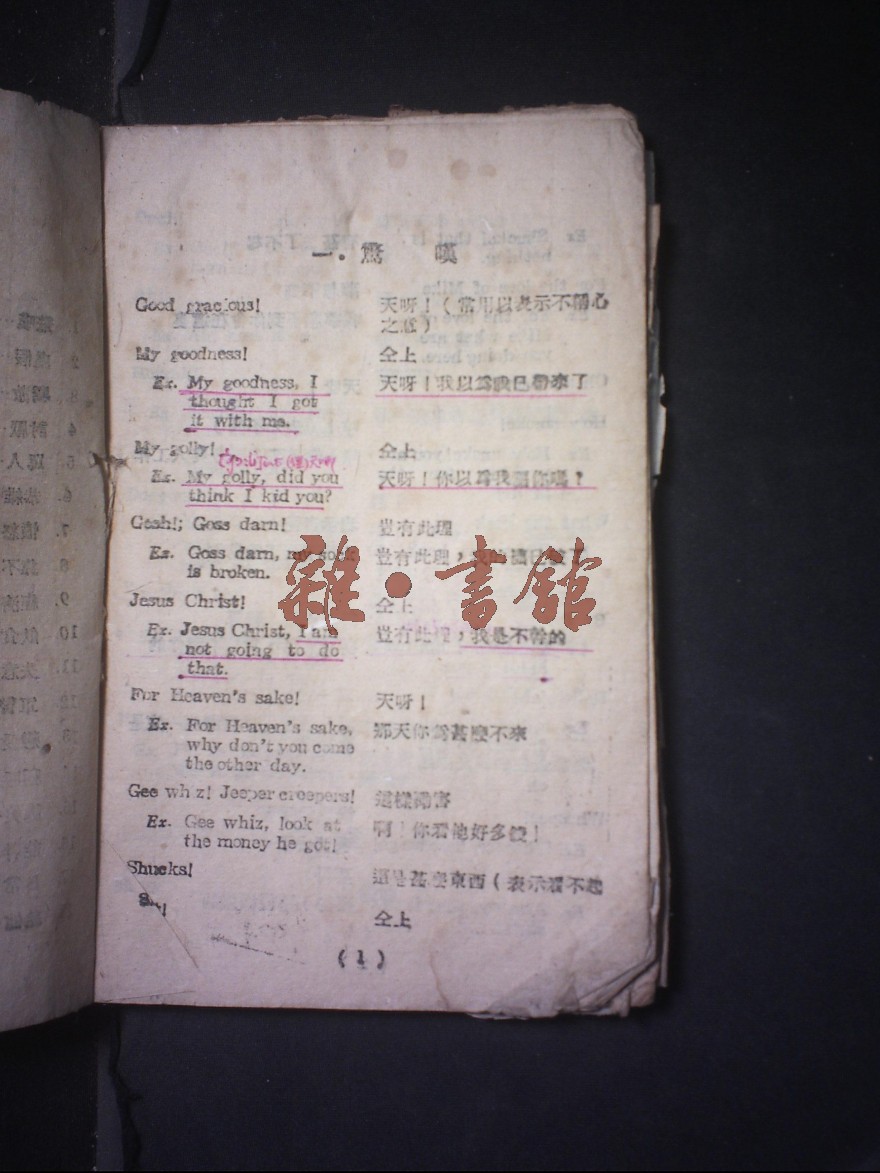 一．驚 嘆
Good gracious! 天呀！（常用以表示不稱心
之意）
My goodness! 仝上
Ex. My goodness, I 天呀！我以為我已帶來了
thought I got
it with me.
My golly! 仝上
Ex. My golly, did you 天呀！你以爲我逗你嗎？
think I kid you?
Gosh!; Goss darn! 豈有此理
Ex. Goss darn, my sock 豈有此理，
is broken.
Jesus Christ! 仝上
Ex. Jesus Christ, I am 豈有此理，我是不幹的
not going to do
that.
For Heaven's sake! 天呀！
Ex. For Heaven's sake, 那天你爲甚麼不來
why don't you come
the other day.
Gee whiz! Jeeper creepers! 這樣
Ex. Gee whiz, look at 啊！你看他好多錢！
the money he got!
Shucks! 這是甚麼東西（表示看不起
仝上
(1)
雜·書館
2
3
4
5.
6.
7.
8
9.
10.
11.
12
13